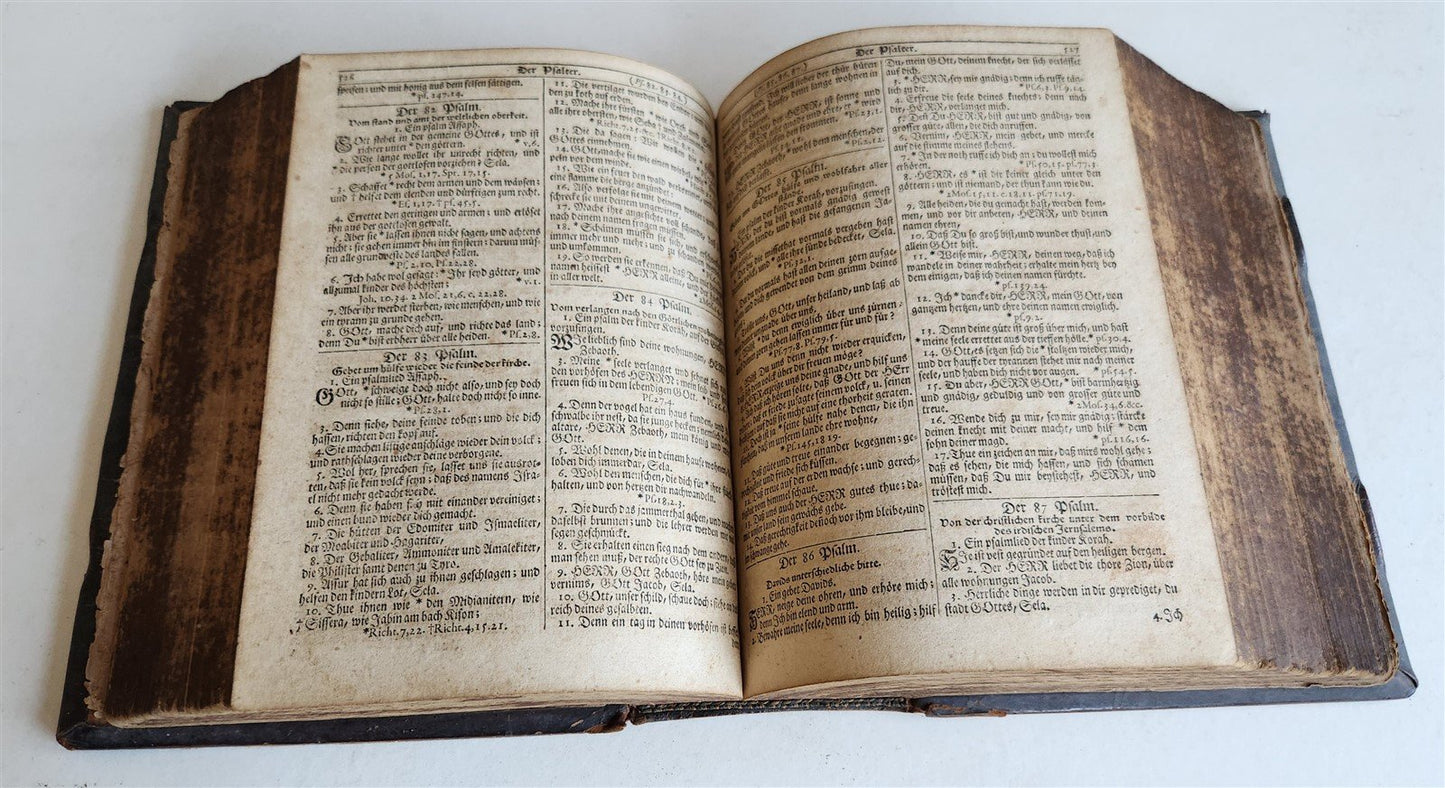 528
Der Psalter.
(Ps. 82. 83. 84.)
speisen; und mit honig aus dem felsen sättigen.
*ps. 147.14.
Der 82 Psalm.
Vom stand und amt der weltlichen oberkeit.
1. Ein psalm Assaph.
GOtt stehet in der gemeine GOttes, und ist
richter unter * den göttern. * v.6.
2. Wie lange wollet ihr unrecht richten, und
* die person der gottlosen vorziehen? Sela.
* 5 Mos. 1.17. Spr. 17.15.
3. Schaffet * recht dem armen und dem wäysen;
und † helfet dem elenden und dürftigen zum recht.
* Es. 1,17. † ps. 45.5.
4. Errettet den geringen und armen; und erlöset
ihn aus der gottlosen gewalt.
5. Aber sie * lassen ihnen nicht sagen, und achtens
nicht; sie gehen immer hin im finstern; darum müs-
sen alle grundveste des landes fallen.
* Ps. 2.10. Ps. 22.28.
6. Ich habe wol gesagt: * Ihr seyd götter, und
allzumal kinder des höchsten; * v.1.
Joh. 10.34. 2 Mos. 21,6. c. 22.28.
7. Aber ihr werdet sterben, wie menschen, und wie
ein tyrann zu grunde gehen.
8. GOtt, mache dich auf, und richte das land;
denn Du * bist erbherr über alle heiden. * Ps. 2,8.
Der 83 Psalm.
Gebet um hülfe wieder die feinde der kirche.
1. Ein psalmlied Assaph.
GOtt, * schweige doch nicht also, und sey doch
nicht so stille; GOtt, halte doch nicht so inne.
* Ps. 28,1.
3. Denn siehe, deine feinde toben; und die dich
hassen, richten den kopf auf.
4. Sie machen listige anschläge wieder dein volck;
und rathschlagen wieder deine verborgene.
5. Wol her, sprechen sie, lasset uns sie ausrot-
ten, daß sie kein volck seyn; daß des namens Isra-
el nicht mehr gedacht werde.
6. Denn sie haben sich mit einander vereiniget;
und einen bund wieder dich gemacht.
7. Die hütten der Edomiter und Ismaeliter,
der Moabiter und Hagariter,
8. Der Gebaliter, Ammoniter und Amalekiter,
die Philister samt denen zu Tyro.
9. Assur hat sich auch zu ihnen geschlagen; und
helfen den kindern Lot, Sela.
10. Thue ihnen wie * den Midianitern, wie
† Sissera, wie Jabin am bach Kison;
* Richt. 7,22. † Richt. 4,15.21.
11. Die vertilget wurden bey
den zu koth auf erden.
12. Mache ihre fürsten * wie Oreb und
alle ihre obersten, wie Seba
* Richt. 7.25.
13. Die da sagen: Wir wollen die
GOttes einnehmen.
14. GOtt, mache sie wie einen wirbel,
peln vor dem winde.
15. Wie ein feuer den wald verbrennet,
eine flamme die berge anzündet:
16. Also verfolge sie mit deinem
schrecke sie mit deinem ungewitter.
17. Mache ihre angesichte voll schande, daß
nach deinem namen fragen müssen,
18. Schämen müssen sie sich, und
immer mehr und mehr; und zu schanden
und umkommen.
19. So werden sie erkennen, daß Du
namen heissest * HERR alleine, und
in aller welt.
Der 84 Psalm.
Vom verlangen nach den Göttlichen
1. Ein psalm der kinder Korah, auf der
vorzusingen.
WIe lieblich sind deine wohnungen, HERR
Zebaoth.
3. Meine * seele verlanget und sehnet sich
den vorhöfen des HERRN; mein leib und
freuen sich in dem lebendigen GOtt.
Ps. 27.4.
4. Denn der vogel hat ein haus funden, und
schwalbe ihr nest, da sie junge hecken;
altare, HERR Zebaoth, mein könig und
GOtt.
5. Wohl denen, die in deinem hause wohnen,
loben dich immerdar, Sela.
6. Wohl der menschen, die dich für * ihre
halten, und von hertzen dir nachwandeln.
* Ps. 18.2.3.
7. Die durch das jammerthal gehen, und
daselbst brunnen; und die lehrer werden mit
segen geschmückt.
8. Sie erhalten einen sieg nach dem andern,
man sehen muß, der rechte GOtt sey zu Zion.
9. HERR, GOtt Zebaoth, höre mein
vernims, GOtt Jacob, Sela.
10. GOtt, unser schild, schaue doch; siehe
reich deines gesalbten.
11. Denn ein tag in deinen vorhöfen ist
Der Psalter.
527
lieber der thür hüten
denn lange wohnen in
HERR, ist sonne und
und ehre; er * wird
den frommen. * Ps. 23.1.
* Ps. 34,11.
Zebaoth, * wohl dem menschen, der
verlässet. * Ps. 2.12.
Der 85 Psalm.
GOttes hülfe und wohlfahrt aller
stände.
der kinder Korah, vorzusingen.
der du bist vormals gnädig gewest
lande, und hast die gefangenen Ja-
die missethat vormals vergeben hast
volck; und * alle ihre sünde bedecket, Sela.
* Ps. 32,1.
du vormals hast allen deinen zorn aufge-
und dich gewendet von dem grimm deines
uns, GOtt, unser heiland, und laß ab
ungnade über uns.
du denn ewiglich über uns zürnen;
zorn gehen lassen immer für und für?
* Ps. 77.8. Ps. 79.5.
Wilt Du uns denn nicht wieder erquicken,
dein volck über dir freuen möge?
HERR, erzeige uns deine gnade, und hilf uns
hören solte, daß GOtt der HErr
friede zusagte seinem volck, u. seinen
auf daß sie nicht auf eine thorheit geraten.
Doch ist ja * seine hülfe nahe denen, die ihn
in unserm lande ehre wohne,
* Ps. 145,18 19.
11. Daß güte und treue einander begegnen; ge-
und friede sich küssen.
12. Daß treue auf der erden wachse; und gerech-
vom himmel schaue.
13. Daß uns auch der HERR gutes thue; da-
unser land sein gewächs gebe.
14. Daß gerechtigkeit dennoch vor ihm bleibe, und
im schwange gehe.
Der 86 Psalm.
Davids unterschiedliche bitte.
1. Ein gebet Davids.
HERR, neige deine ohren, und erhöre mich;
denn Ich bin elend und arm.
2. Bewahre meine seele, denn ich bin heilig; hilf
Du, mein GOtt, deinem knecht, der sich verlässet
auf dich.
3. * HERR, sey mir gnädig; denn ich ruffe täg-
lich zu dir. * Ps. 6.3. Ps. 9.14.
4. Erfreue die seele deines knechts; denn nach
dir, HERR, verlanget mich.
5. Denn Du HERR, bist gut und gnädig, von
grosser güte, allen, die dich anruffen.
6. Vernim, HERR, mein gebet, und mercke
auf die stimme meines flehens.
7. * In der noth ruffe ich dich an; du wollest mich
erhören. * Ps. 50.15. ps. 77.3.
8. HERR, es * ist dir keiner gleich unter den
göttern; und ist niemand, der thun kann wie du.
* 2 Mos. 15.11. c. 18.11. ps. 71.19.
9. Alle heiden, die du gemacht hast, werden kom-
men, und vor dir anbeten, HERR, und deinen
namen ehren,
10. Daß Du so groß bist, und wunder thust, und
allein GOtt bist.
11. * Weise mir, HERR, deinen weg, daß ich
wandele in deiner wahrheit; erhalte mein hertz bey
dem einigen, daß ich deinen namen fürchte.
* ps. 139.24.
12. Ich * dancke dir, HERR, mein GOtt, von
gantzem hertzen, und ehre deinen namen ewiglich.
* ps. 9.2.
13. Denn deine güte ist groß über mich, und hast
* meine seele errettet aus der tiefen hölle. * ps. 30.4.
14. GOtt, es setzen sich die * stolzen wieder mich,
und der hauffe der tyrannen stehet mir nach meiner
seele, und haben dich nicht vor augen. * ps. 54.5.
15. Du aber, HERR GOtt, * bist barmhertzig
und gnädig, geduldig und von grosser güte und
treue. * 2 Mos. 34,6.8.cc.
16. Wende dich zu mir, sey mir gnädig; stärcke
deinen knecht mit deiner macht, und hilf * dem
sohn deiner magd. * ps. 116,16.
17. Thue ein zeichen an mir, daß mirs wohl gehe;
daß es sehen, die mich hassen, und sich schämen
müssen, daß Du mir beystehest, HERR, und
tröstest mich.
Der 87 Psalm.
Von der christlichen kirche unter dem vorbilde
des irdischen Jerusalems.
1. Ein psalmlied der kinder Korah.
SIe ist vest gegründet auf den heiligen bergen.
2. Der HERR liebet die thore Zion, über
alle wohnungen Jacob.
3. Herrliche dinge werden in dir geprediget, du
stadt GOttes, Sela.
4. Ich